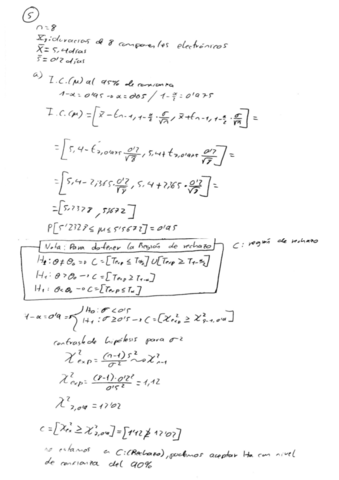 5
n=8
X̄: duracion de 8 componentes electrónicos
x̄=5,4 días
s=0'2 días
a) I.C.(μ) al 95% de confianza
1-α=0'95 → α=0'05 / 1-α/2=0'975
I.C.(μ)=[x̄-t n-1,1-α/2·σ/√n, x̄+t n-1,1-α/2·σ/√n]=
=[5,4-t 7,0'975·0'2/√8, 5,4+t 7,0'975·0'2/√8]=
=[5,4-2,365·0'2/√8, 5,4+2,365·0'2/√8]=
=[5,2328, 5,5672]
P[5'2328≤μ≤5'5672]=0'95
Nota: Para obtener la Región de rechazo C: región de rechazo
H₁: θ≠θ₀ → C=[Texp≤Tα/2]U[Texp≥T1-α/2]
H₁: θ>θ₀ → C=[Texp≥T1-α]
H₁: θ<θ₀ → C=[Texp≤Tα]
1-α=0'9 H₀: σ<0'5
H₁: σ≥0'5 → C=[χ²exp≥χ²n-1,0'9]
contraste de hipótesis para σ²
χ²exp=(n-1)s²/σ² ~ χ²n-1
χ²exp=(8-1)·0'2²/0'5²=1,12
χ²7,0'9=12'02
C=[χ²exp≥χ²7,0'9]=[1'12≱12'02]
no estamos a C:(Rechazo), podemos aceptar H₀ con nivel
de confianza del 90%